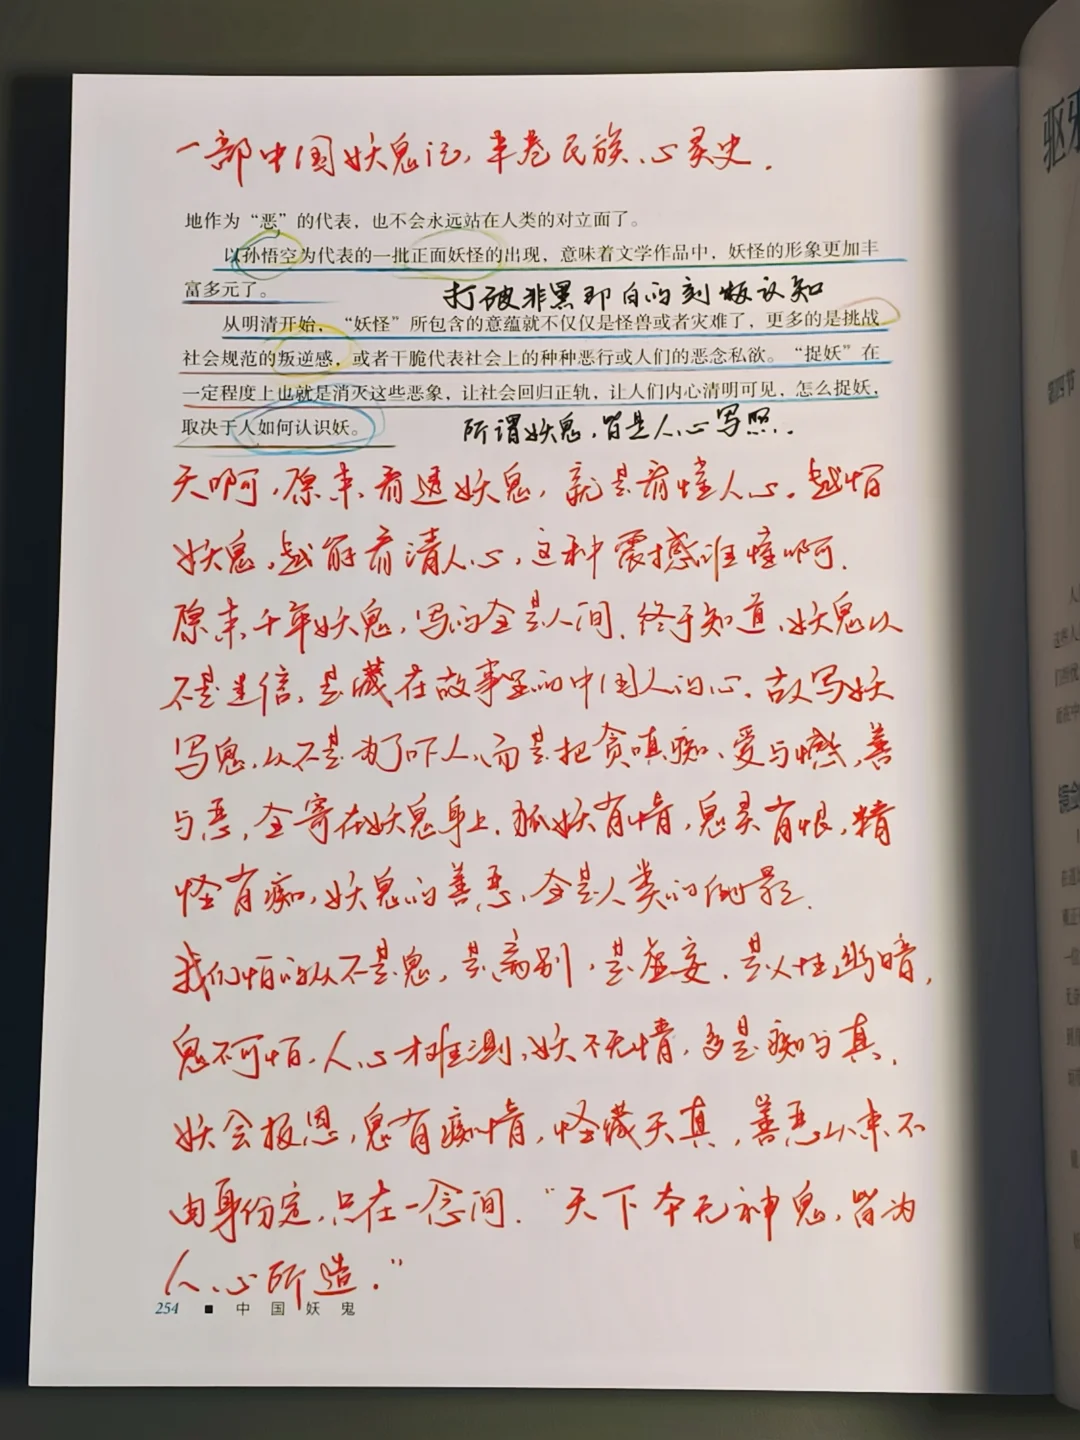 一部中国妖鬼记，半卷民族心灵史．
地作为“恶”的代表，也不会永远站在人类的对立面了。
以孙悟空为代表的一批正面妖怪的出现，意味着文学作品中，妖怪的形象更加丰
富多元了。
打破非黑即白的刻板认知
从明清开始，“妖怪”所包含的意蕴就不仅仅是怪兽或者灾难了，更多的是挑战
社会规范的叛逆感，或者干脆代表社会上的种种恶行或人们的恶念私欲。“捉妖”在
一定程度上也就是消灭这些恶象，让社会回归正轨，让人们内心清明可见，怎么捉妖，
取决于人如何认识妖。
所谓妖鬼，皆是人心写照．
天啊，原来看透妖鬼，就是看懂人心。越怕
妖鬼，越能看清人心，这种震撼谁懂啊．
原来千年妖鬼，写的全是人间．终于知道，妖鬼从
不是迷信，是藏在故事里的中国人的心．古人写妖
写鬼，从不是为了吓人，而是把贪嗔痴、爱与憾，善
与恶，全寄在妖鬼身上．狐妖有情，鬼灵有恨，精
怪有痴，妖鬼的善恶，全是人类的倒影．
我们怕的从不是鬼，是离别，是虚妄．是人性幽暗，
鬼不可怕．人心才难测，妖不无情，多是痴与真．
妖会报恩，鬼有痴情，怪藏天真，善恶从来不
由身份定，只在一念间．“天下本无神鬼，皆为
人心所造．”
254 ■ 中国妖鬼
驱邪
第四节